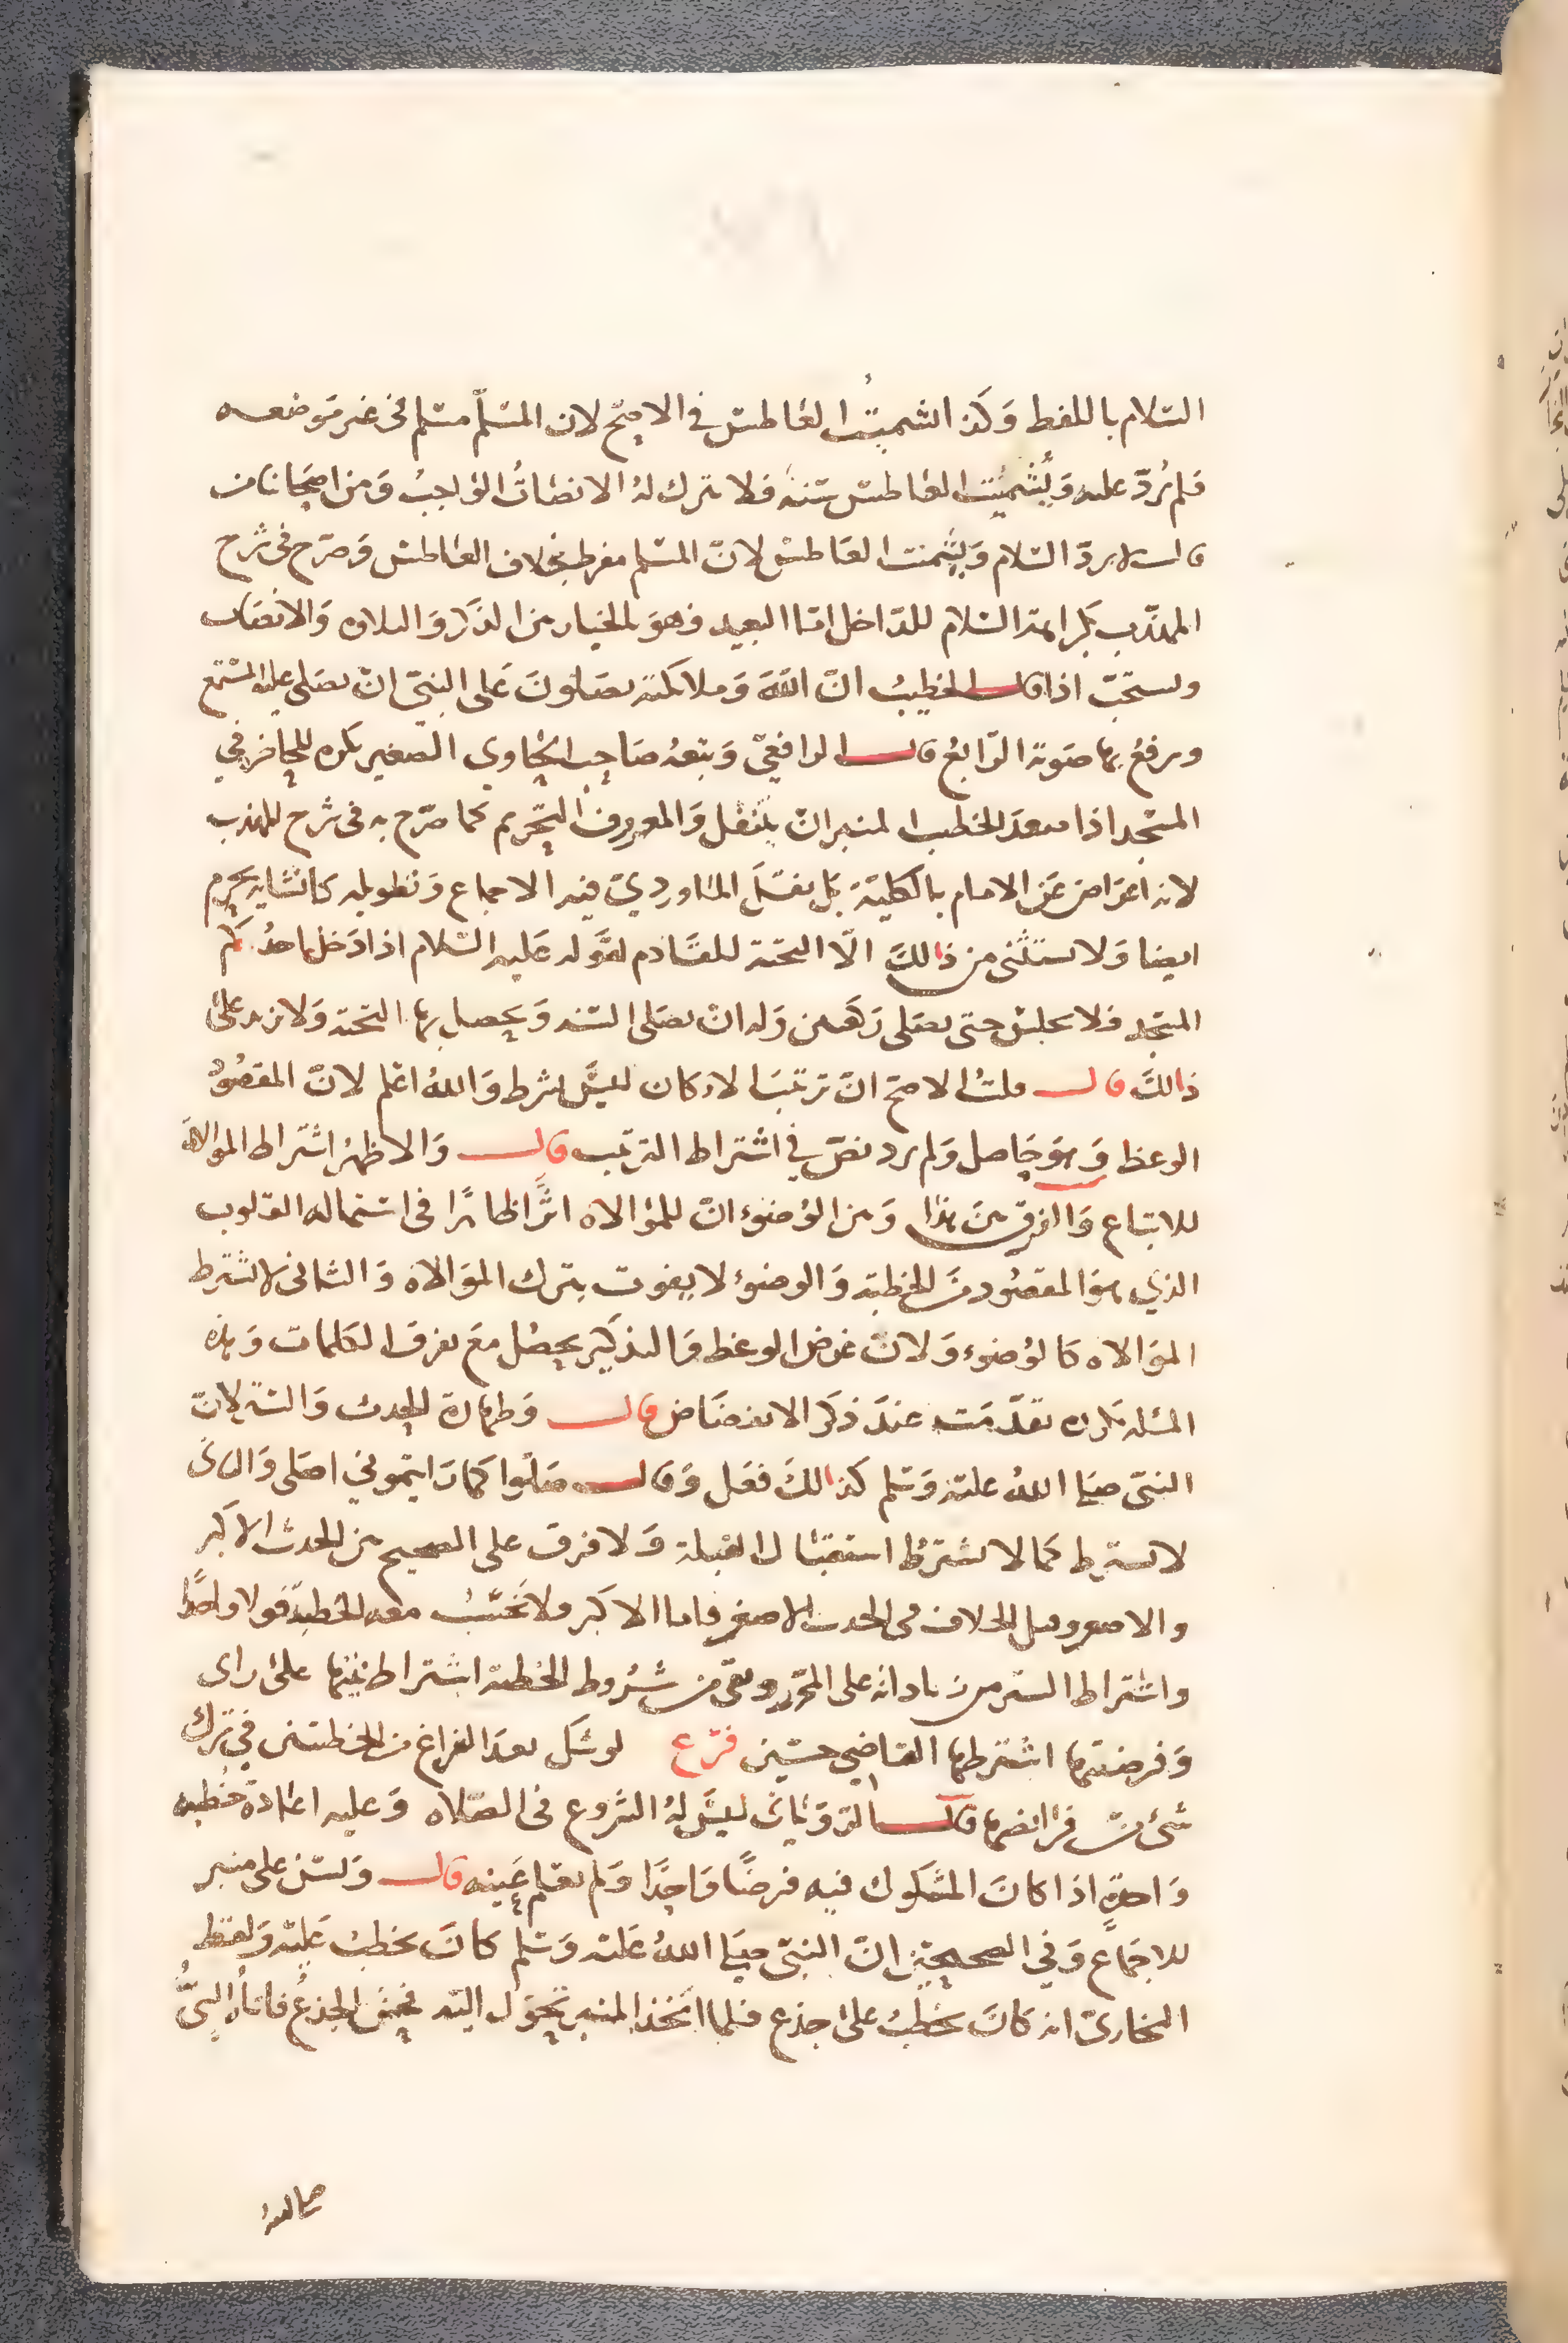 السّلام باللفظ وَكَذا تشميتُ العَاطسْ في الاصحّ لان المسْلّم مسْلم في غير مَوضعه
فلم يُردّ عليه وَيُشَميّت العَاطسْ سْنة فلا يترك لهُ الانصَاتُ الوَاجبُ وَمن اصحَابنا من
قال لا يردّ السْلام وَيشَمت العَاطسْ لانّ المسْلم مفرط بخلاف العَاطسْ وَصَرّح في شرح
المهذّب بكراهة السْلام للدّاخل امّا البعيد فهوَ بالخيار من الذكر وَالتلاوه وَالانصَات
ويستحَبّ اذا قال الخطيبُ انّ اللَّهَ وَملائكته يصَلونَ عَلى النبيّ انْ يصَلي عليه المسْتمع
ويرفعُ بها صَوته الرّابعُ قال الرافعيّ وَتبعهُ صَاحب الحَاوي الصغير يكره للحَاضر في
المسْجد اذا صعدَ الخطيب المنبر انْ يتنفل وَالمعروف التحريم كما صَرّح به في شرح المهذب
لانه اعرَاض عَن الامام بالكليّة بَل نقلَ المَاورديّ فيه الاجماع وَتطويله كانشايه يحرم
ايضا وَلا يستثنى من ذالكَ الّا التحية للقَادم لقوَله عَليه السْلام اذا دَخل احدُكم
المسْجد فلا يجلسْ حتى يصَلي ركعتين وَله انْ يصَلي السْنه وَيحصل بها التحية وَلا يزيد علىَ
ذالكَ قال قلتُ الاصَح انّ ترتيبَ الاركان ليسَ بشرط وَاللهُ اعَلم لانّ المقصُودُ
الوعظ وَهوَ حَاصل وَلم يرد نصّ في اشتراط الترتيب قال وَالاظهرُ اشتراط الموَالاة
للاتباع وَالفرق بينَ هذا وَبين الوُضوُء انّ للموَالاه اثرًا ظاهرًا في استماله القلوب
الذي هوَ المقصُود منَ الخطبة وَالوضوُء لا يفوت بترك الموَالاة وَالثاني لا يشترط
الموَالاه كَالوُضوء وَلانّ غرض الوعظ وَالتذكير يحصُل معَ تفرق الكلمات وَهذه
المسْله تكرره تقدّمَت عندَ ذكر الانفضَاض قال وَطهارة الحدث وَالستْر لانّ
النبيّ صَلى اللهُ عليْه وَسْلم كذالكَ فعَل وَقال صَلّوا كمَا رَايتموني اصَلي وَالثاني
لا يشترط كمَا لا يشترطُ استقبَال القبلة وَلا فرق على الصحيح من الحدث الاكبر
والاصغر وقيل الخلاف في الحدث الاصغر فاما الاكبر فلا تُحَسبُ معه الخطبة قولا واحدًا
واشتراط الستر من زياداته على المحرّر وبقي من شُروط الخطبة اشتراط نيتها علىَ راى
وَفرضيتها اشترطها القاضي حسْين فرْع لو شكَ بعدَ الفراغ من الخطبتين في ترك
شئ منْ فرائضهَا قال الرّوَيَاني ليسَ لهُ الشروع في الصَلاه وَعليه اعَادة خُطبه
وَاحدةٍ اذا كانَ المشكوك فيه فرضًا وَاحِدًا وَلم يعَلم عَينه قال وَتسْن على منبر
للاجَماع وَفي الصحيحينِ انّ النبيّ صَلى اللهُ عَليْه وَسْلم كانَ يخطبُ عَليْه وَلفظُ
البخاريّ انه كانَ يخطبُ علىَ جذع فلما اتخذ المنبر تحوَل اليْه فحن الجذعُ فاتاهُ النبيُّ